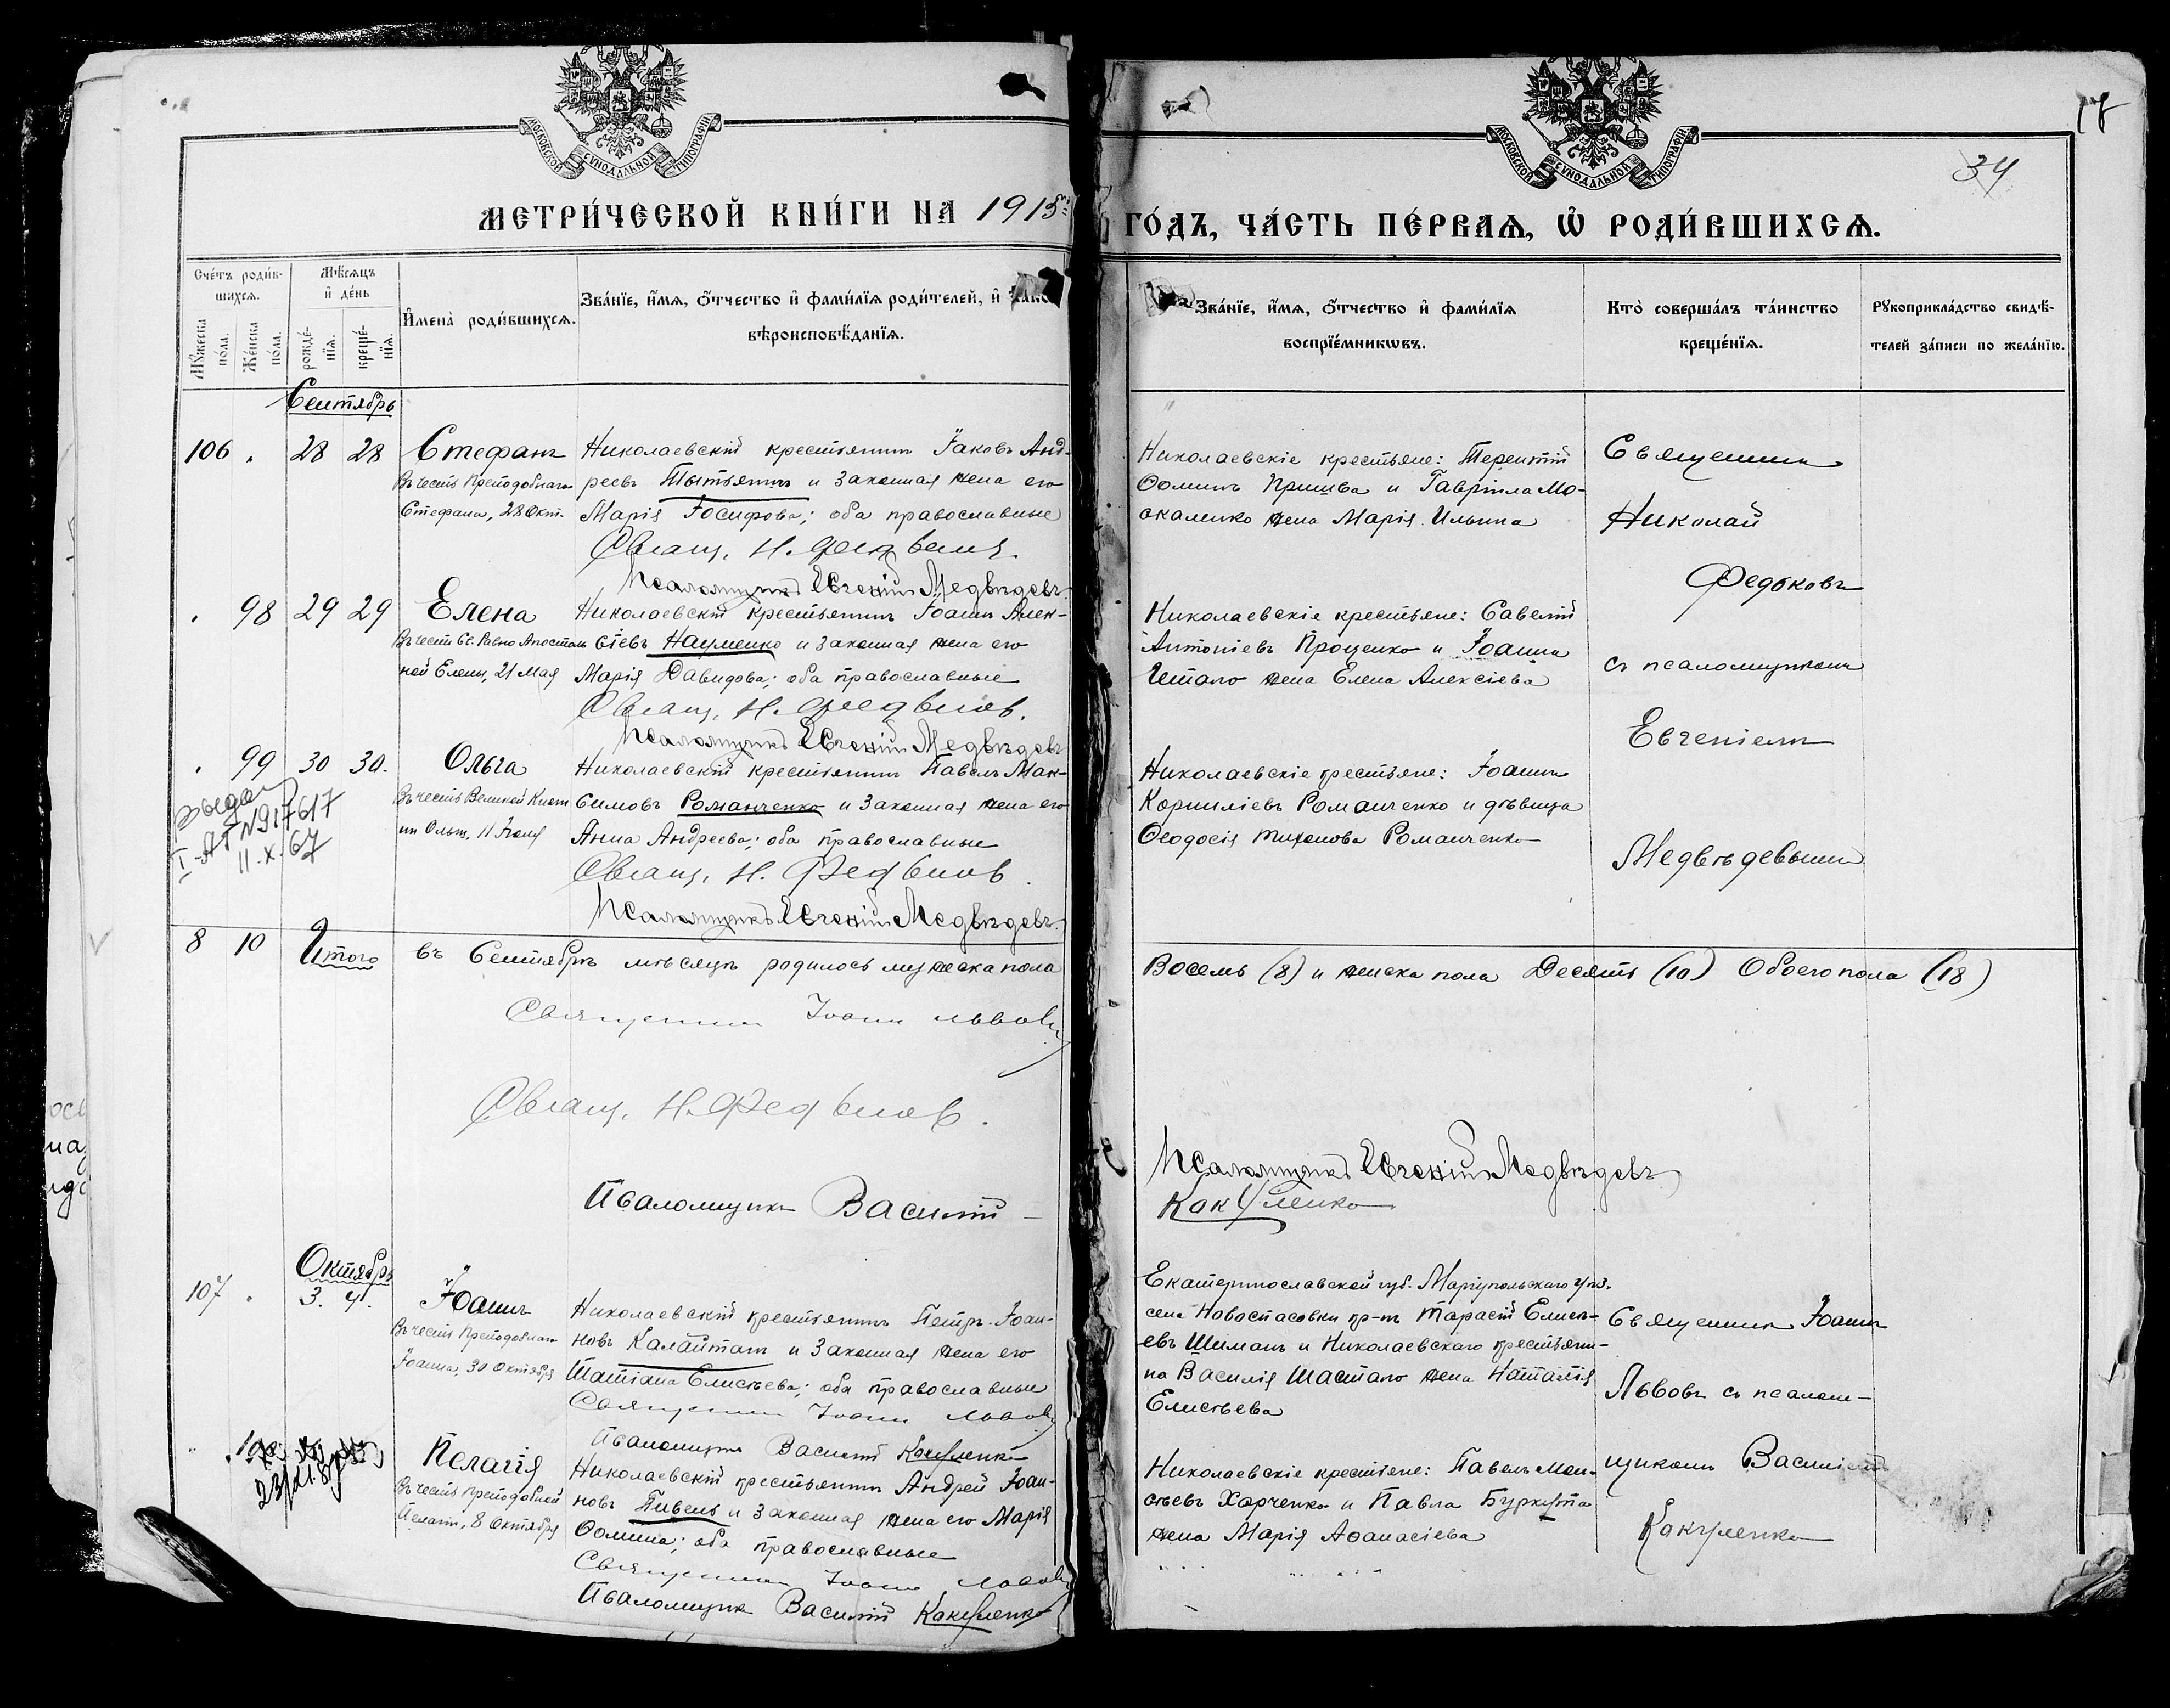 МОСКОВСКОЙ СѴНОДАЛЬНОЙ ТИПОГРАФІИ
МОСКОВСКОЙ СѴНОДАЛЬНОЙ ТИПОГРАФІИ
34
МЕТРИ́ЧЕСКОЙ КНИ́ГИ НА 1915
ГО́ДЪ, ЧА́СТЬ ПЕ́РВАѦ, Ѿ РОДИ́ВШИХСѦ.
Сче́тъ роди́в-
шихсѧ.
Мꙋ́жеска по́ла.
Же́нска по́ла.
Мѣ́сѧцъ
и҆ де́нь
рожде́-
нїѧ.
креще́-
нїѧ.
И҆мена̀ роди́вшихсѧ.
Зва́нїе, и҆́мѧ, о҆́тчество и҆ фами́лїѧ роди́телей, и҆
вѣроисповѣ́данїѧ.
Зва́нїе, и҆́мѧ, о҆́тчество и҆ фами́лїѧ
воспрїе́мникѡвъ.
Кто̀ соверша́лъ та́инство
креще́нїѧ.
Рꙋкоприкла́дство свидѣ́-
телей за́писи по жела́нїю.
Сентябрь
106 . 28 28 Стефанъ
Въ честь Преподобнаго
Стефана, 28 Окт.
Николаевскій крестьянинъ Іаковъ Анд-
реевъ Тытьянинъ и законная жена его
Марія Іосифова; оба православные
Свящ. Н. Федьковъ.
Псаломщикъ Евгеній Медвѣдевъ.
Николаевскіе крестьяне: Терентій
Ѳоминъ и Гавріила Мо-
скаленко жена Марія Ильина
Священникъ
Николай
Федьковъ
съ псаломщикомъ
Евгеніемъ
Медвѣдевымъ
. 98 29 29 Елена
Въ честь Св. Равно Апостоль
ной Елены, 21 Мая
Николаевскій крестьянинъ Іоаннъ Алек-
сіевъ Науменко и законная жена его
Марія Давидова; оба православные
Свящ. Н. Федьковъ.
Псаломщикъ Евгеній Медвѣдевъ
Николаевскіе крестьяне: Савелій
Антоніевъ Проценко и Іоанна
жена Елена Алексіева
. 99 30 30. Ольга
Въ честь Великой Княги
ни Ольги, 11 Іюля
I-АП №917617
11.X.67
Николаевскій крестьянинъ Павелъ Мак-
симовъ Романченко и законная жена его
Анна Андреева; оба православные
Свящ. Н. Федьковъ.
Псаломщикъ Евгеній Медвѣдевъ.
Николаевскіе крестьяне: Іоаннъ
Корниліевъ Романченко и дѣвица
Ѳеодосія Тихонова Романченко
8 10 Итого въ Сентябрѣ мѣсяцѣ родилось мужеска пола
Восемь (8) и женска пола Десять (10) Обоего пола (18)
Священникъ Іоаннъ Львовъ
Свящ. Н. Федьковъ.
Псаломщикъ Евгеній Медвѣдевъ
Псаломщикъ Василій
Какуленко
Октябрь
107 . 3. 4. Іоаннъ
Въ честь Преподобнаго
Іоанна, 30 Октября
Николаевскій крестьянинъ Петръ Іоан-
новъ Калайтанъ и законная жена его
Татіана Елисѣева; оба православные
Священникъ Іоаннъ Львовъ
Псаломщикъ Василій Какуленко
Екатеринославской губ. Маріупольскаго уѣз.
села Новоспасовки кр-нъ Тарасій Елисѣ-
евъ Шиманъ и Николаевскаго крестьяни-
на Василія Шастало жена Наталія
Елисѣева
Священникъ Іоаннъ
Львовъ съ псалом-
щикомъ Василіемъ
Какуленко
Пелагія
Въ честь Преподобной
Пелагіи, 8 Октября
Николаевскій крестьянинъ Андрей Іоан-
новъ Пивень и законная жена его Марія
Ѳомина; оба православные
Священникъ Іоаннъ Львовъ
Псаломщикъ Василій Какуленко
Николаевскіе крестьяне: Павелъ Мои-
сѣевъ Харченко и Павла Буркута
жена Марія Аѳанасіева